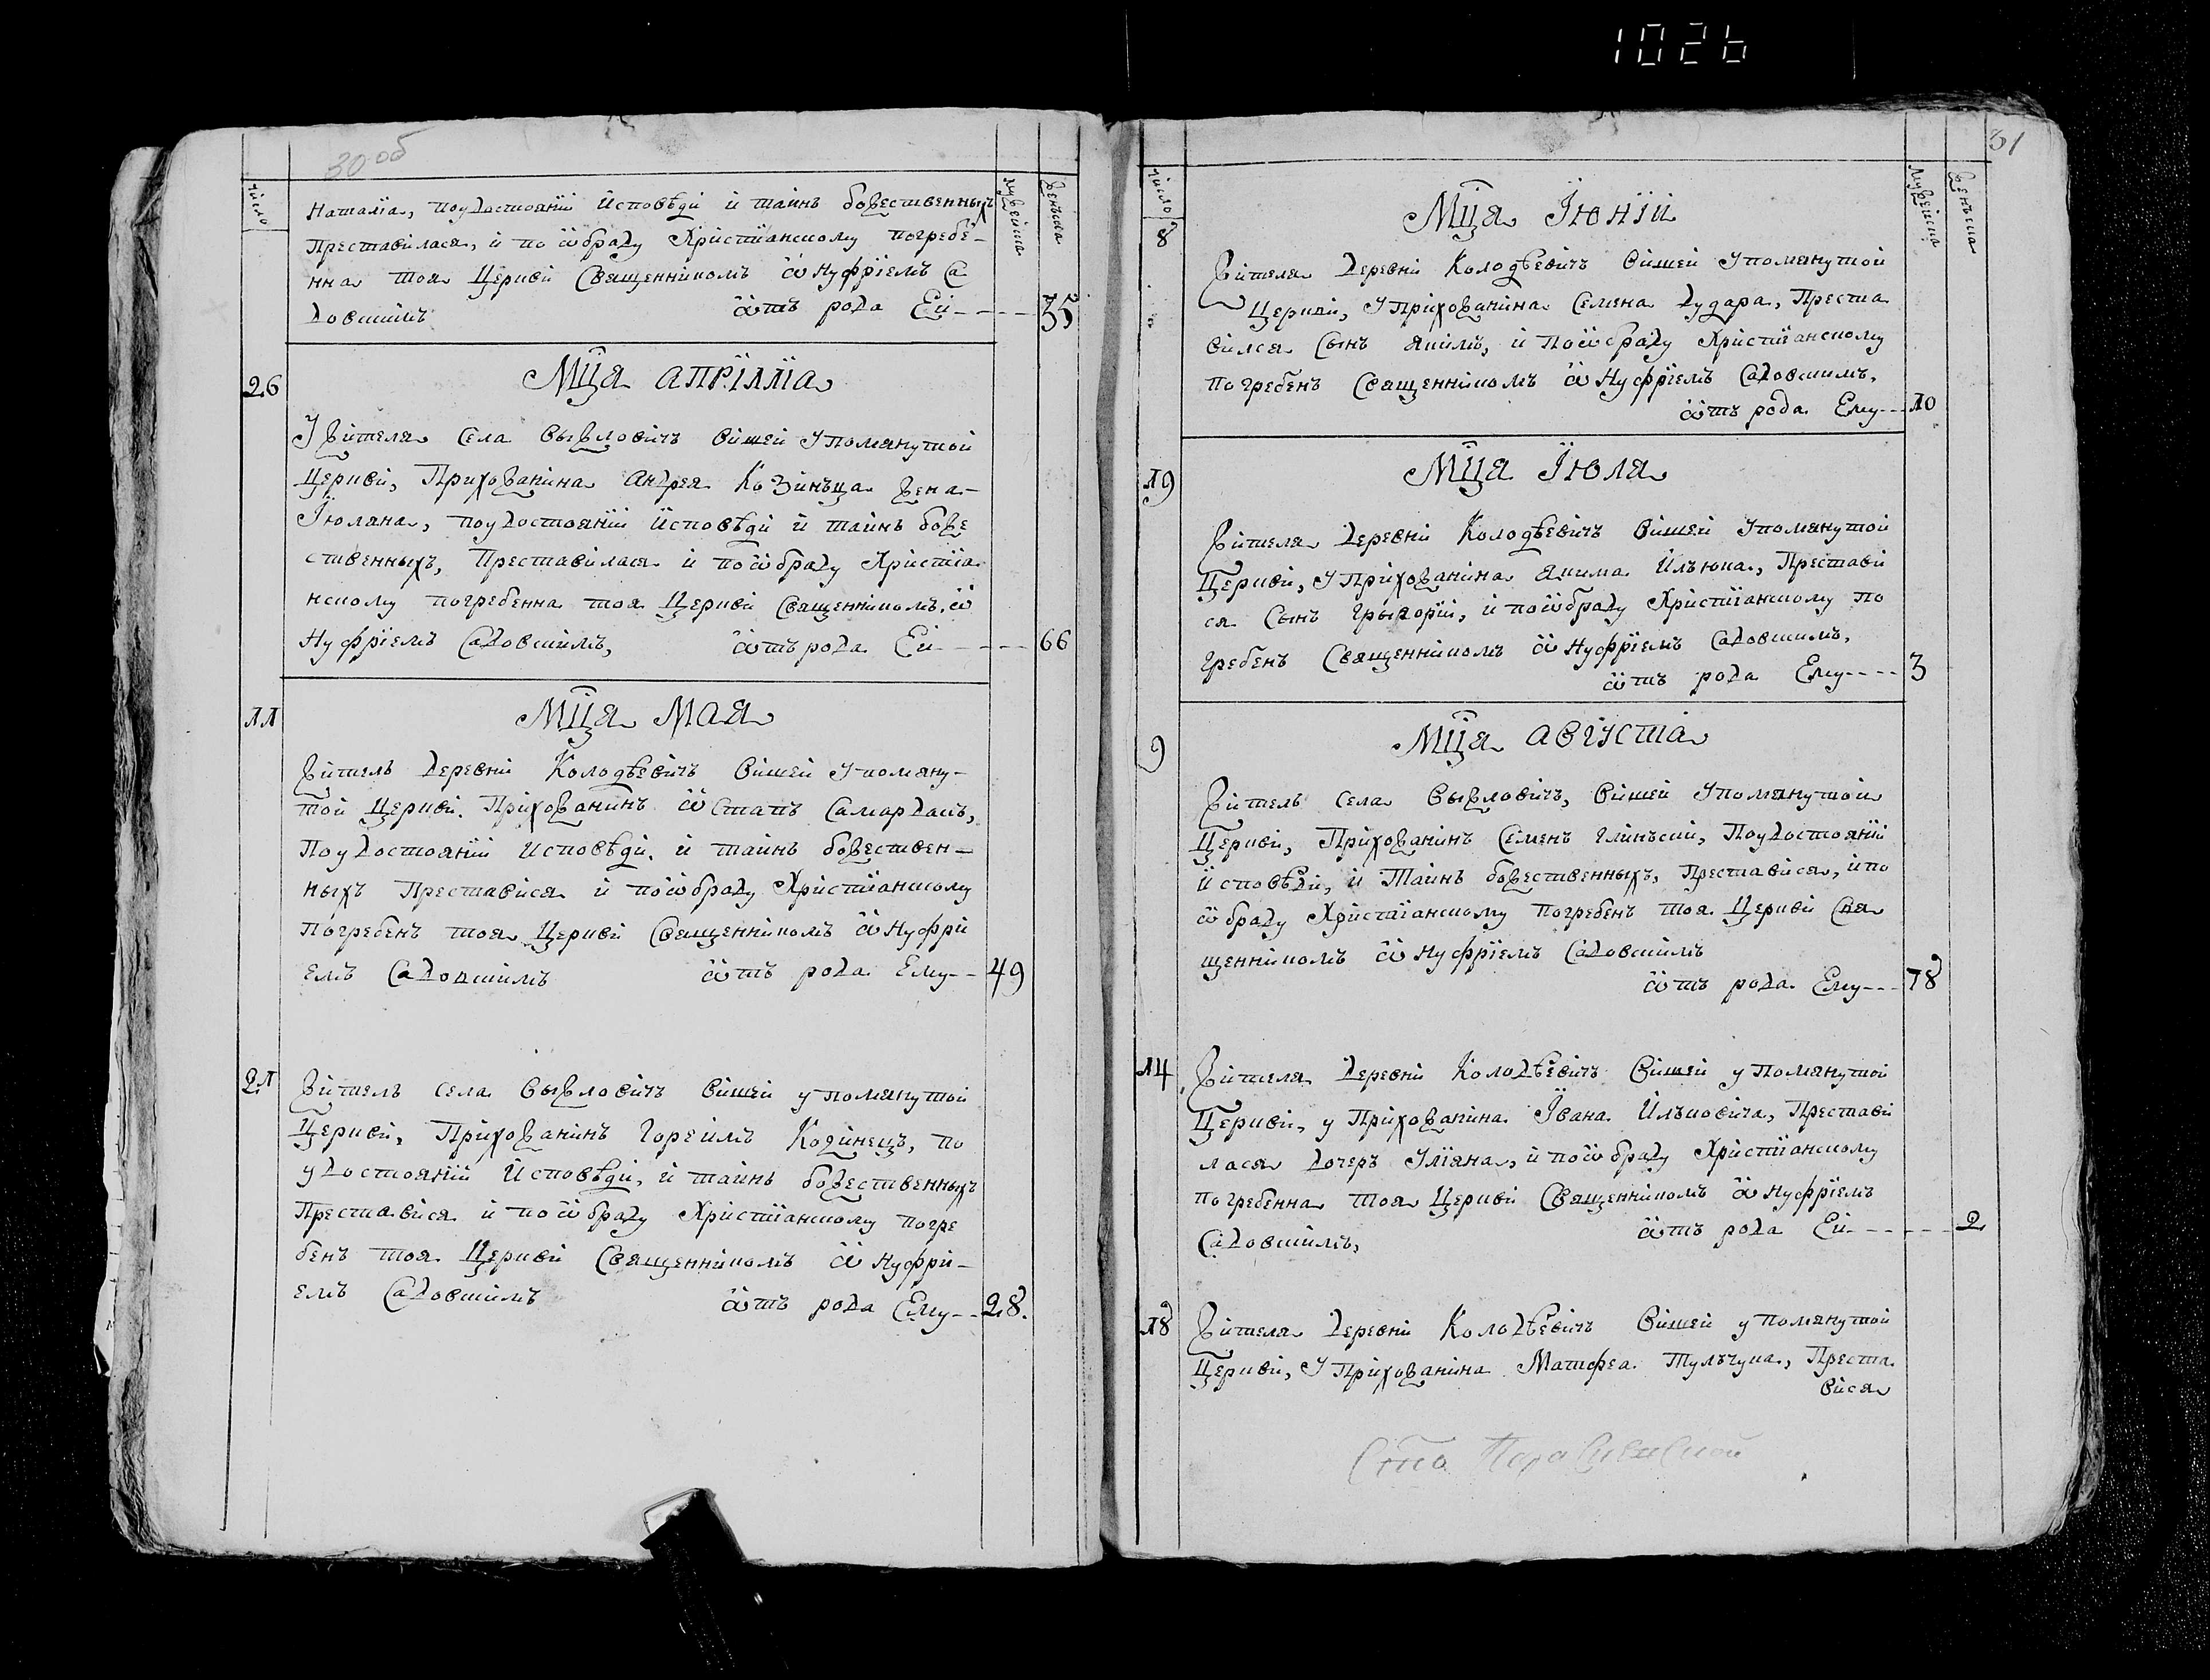 1026
30 об
число
мужеска
женьска
Наталїа, поудостоянїи Исповѣди и таинъ божественныхъ
Преставилася, и по ѡбраду Христїанскому погребе-
нна тоя Церкви Священникомъ ѡнуфрїемъ Са
довскимъ ѿтъ рода Еи - - - - 35
26
Мц҃а апрїллїа
У жителя села Выжловичъ вишей упомянутой
Церкви, Прихожанина Андрея Козинъца жена
Їюляна, поудостоянїи Исповѣди и таинъ боже
ственныхъ, Преставилася и по ѡбраду Христїа
нскому погребенна тоя Церкви Священникомъ ѡ
нуфрїемъ Садовскимъ, ѿтъ рода Еи - - - - 66
11
Мц҃а Мая
Житель деревни Колодѣевичъ вишей упомяну-
той Церкви. Прихожанинъ ѡстапъ Самардакъ,
Поудостоянїи Исповѣди. и таинъ божествен-
ныхъ Преставися и по ѡбраду Христїанскому
Погребенъ тоя Церкви Священникомъ ѡнуфрїи
емъ Садовскимъ ѿтъ рода Ему - - 49
21
Житель села Выжловичъ вишей упомянутой
Церкви, Прихожанинъ Горейлъ Козинецъ, по
удостоянїи Исповѣди, и таинъ божественныхъ
Преставися и по ѡбраду Христїанскому погре
бенъ тоя Церкви Священникомъ ѡнуфри-
емъ Садовскимъ ѿтъ рода Ему - - 28.
31
число
мужеска
женьска
8
Мц҃а Їюнїи
Жителя деревни Колодѣевичъ вишей упомянутой
Церкви, У Прихожанина Семена Дудара, Преста
вился Сынъ Якимъ, и По ѡбраду Христїанскому
погребенъ Священникомъ ѡнуфрїемъ Садовскимъ,
ѿтъ рода Ему - - - 10
19
Мц҃а Їюля
Жителя деревни Колодѣевичъ вишей упомянутой
Церкви, У Прихожанина Якима Илъюка, Престави
ся Сынъ Грыгорїй, и по ѡбраду Христїанскому по
гребенъ Священникомъ ѡнуфрїемъ Садовскимъ,
ѿтъ рода Ему - - - - 3
9
Мц҃а августа
Житель села Выжловичъ, вишей упомянутой
Церкви, Прихожанинъ Семенъ Глинъский, Поудостоянїи
Исповѣди, и Таинъ божественныхъ, Преставися, и по
ѡбраду Христїанскому погребенъ тоя Церкви Свя
щенникомъ ѡнуфрїемъ Садовскимъ
ѿтъ рода Ему - - - 78
14
Жителя деревни Колодѣевичъ вишей упомянутой
Церкви, у Прихожанина Їоана Илъковича, Престави
лася дочеръ Улїяна, и по ѡбраду Христїанскому
погребенна тоя Церкви Священникомъ ѡнуфрїемъ
Садовскимъ, ѿтъ рода Еи - - - - - 2
18
Жителя деревни Колодѣевичъ вишей упомянутой
Церкви, У Прихожанина Матфеа Тулъчука, Преста
вися